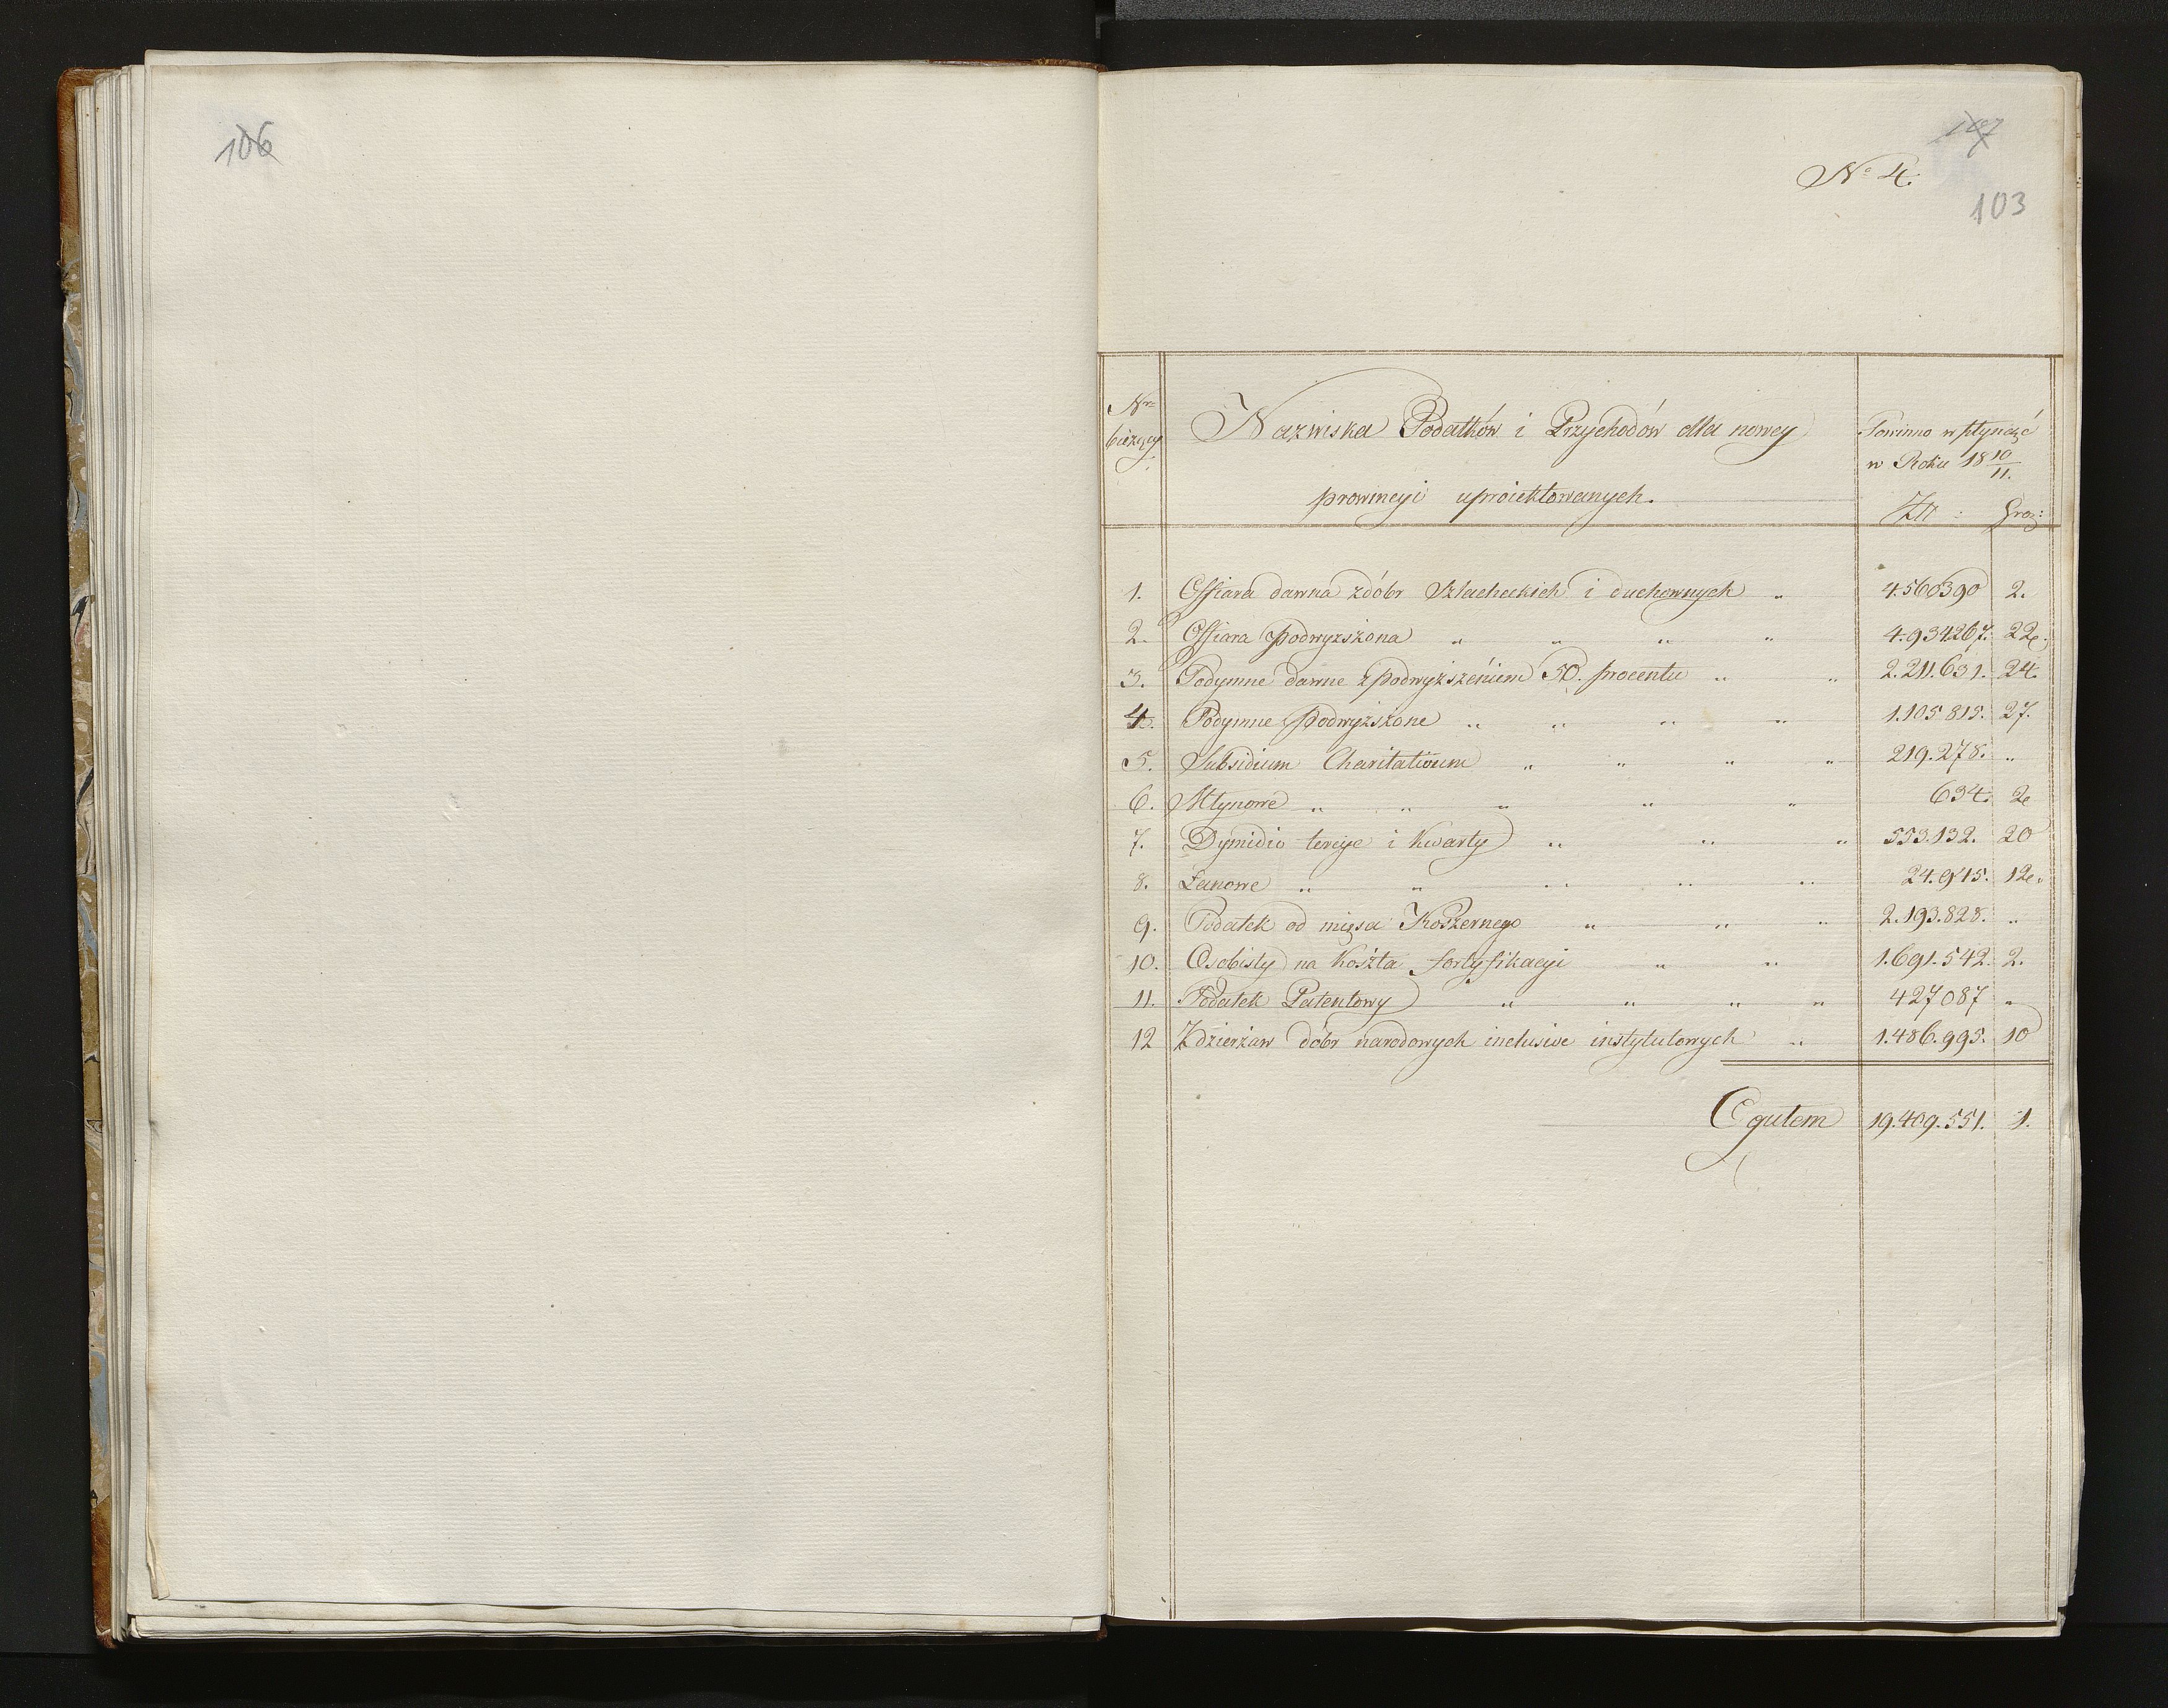 106
107
N° 4.
103
Nro bieżący
Nazwiska Podatków i Przychodów dla nowey
prowincyi uproiektowanych.
Powinno wpłynąć
w Roku 18 10/11.
Złt: Grosz:
1. Offiara dawna z dóbr Szlacheckich i duchownych „ 4.560390 2.
2. Offiara podwyzszona „ „ „ „ 4.934267. 22.
3. Podymne dawne z podwyższeniem 50. procentu „ „ 2.211.631. 24.
4. Podymne podwyższone „ „ „ „ 1.105 815. 27.
5. Subsidium Charitativum „ „ „ „ 219.278. „
6. Młynowe „ „ „ „ „ 634. 2
7. Dymidio tercye i Kwarty „ „ „ 553.132. 20
8. Łanowe „ „ „ „ „ 24.945. 12.
9. Podatek od mięsa Koszernego „ „ „ 2.193.828. „
10. Osobisty na Koszta fortyfikacyi „ „ 1.691.542. 2.
11. Podatek Patentowy „ „ „ „ 427087 „
12 Z dzierżaw dóbr narodowych inclusive instytutowych „ 1.486.995. 10
Ogułem 19.409.551. 1.